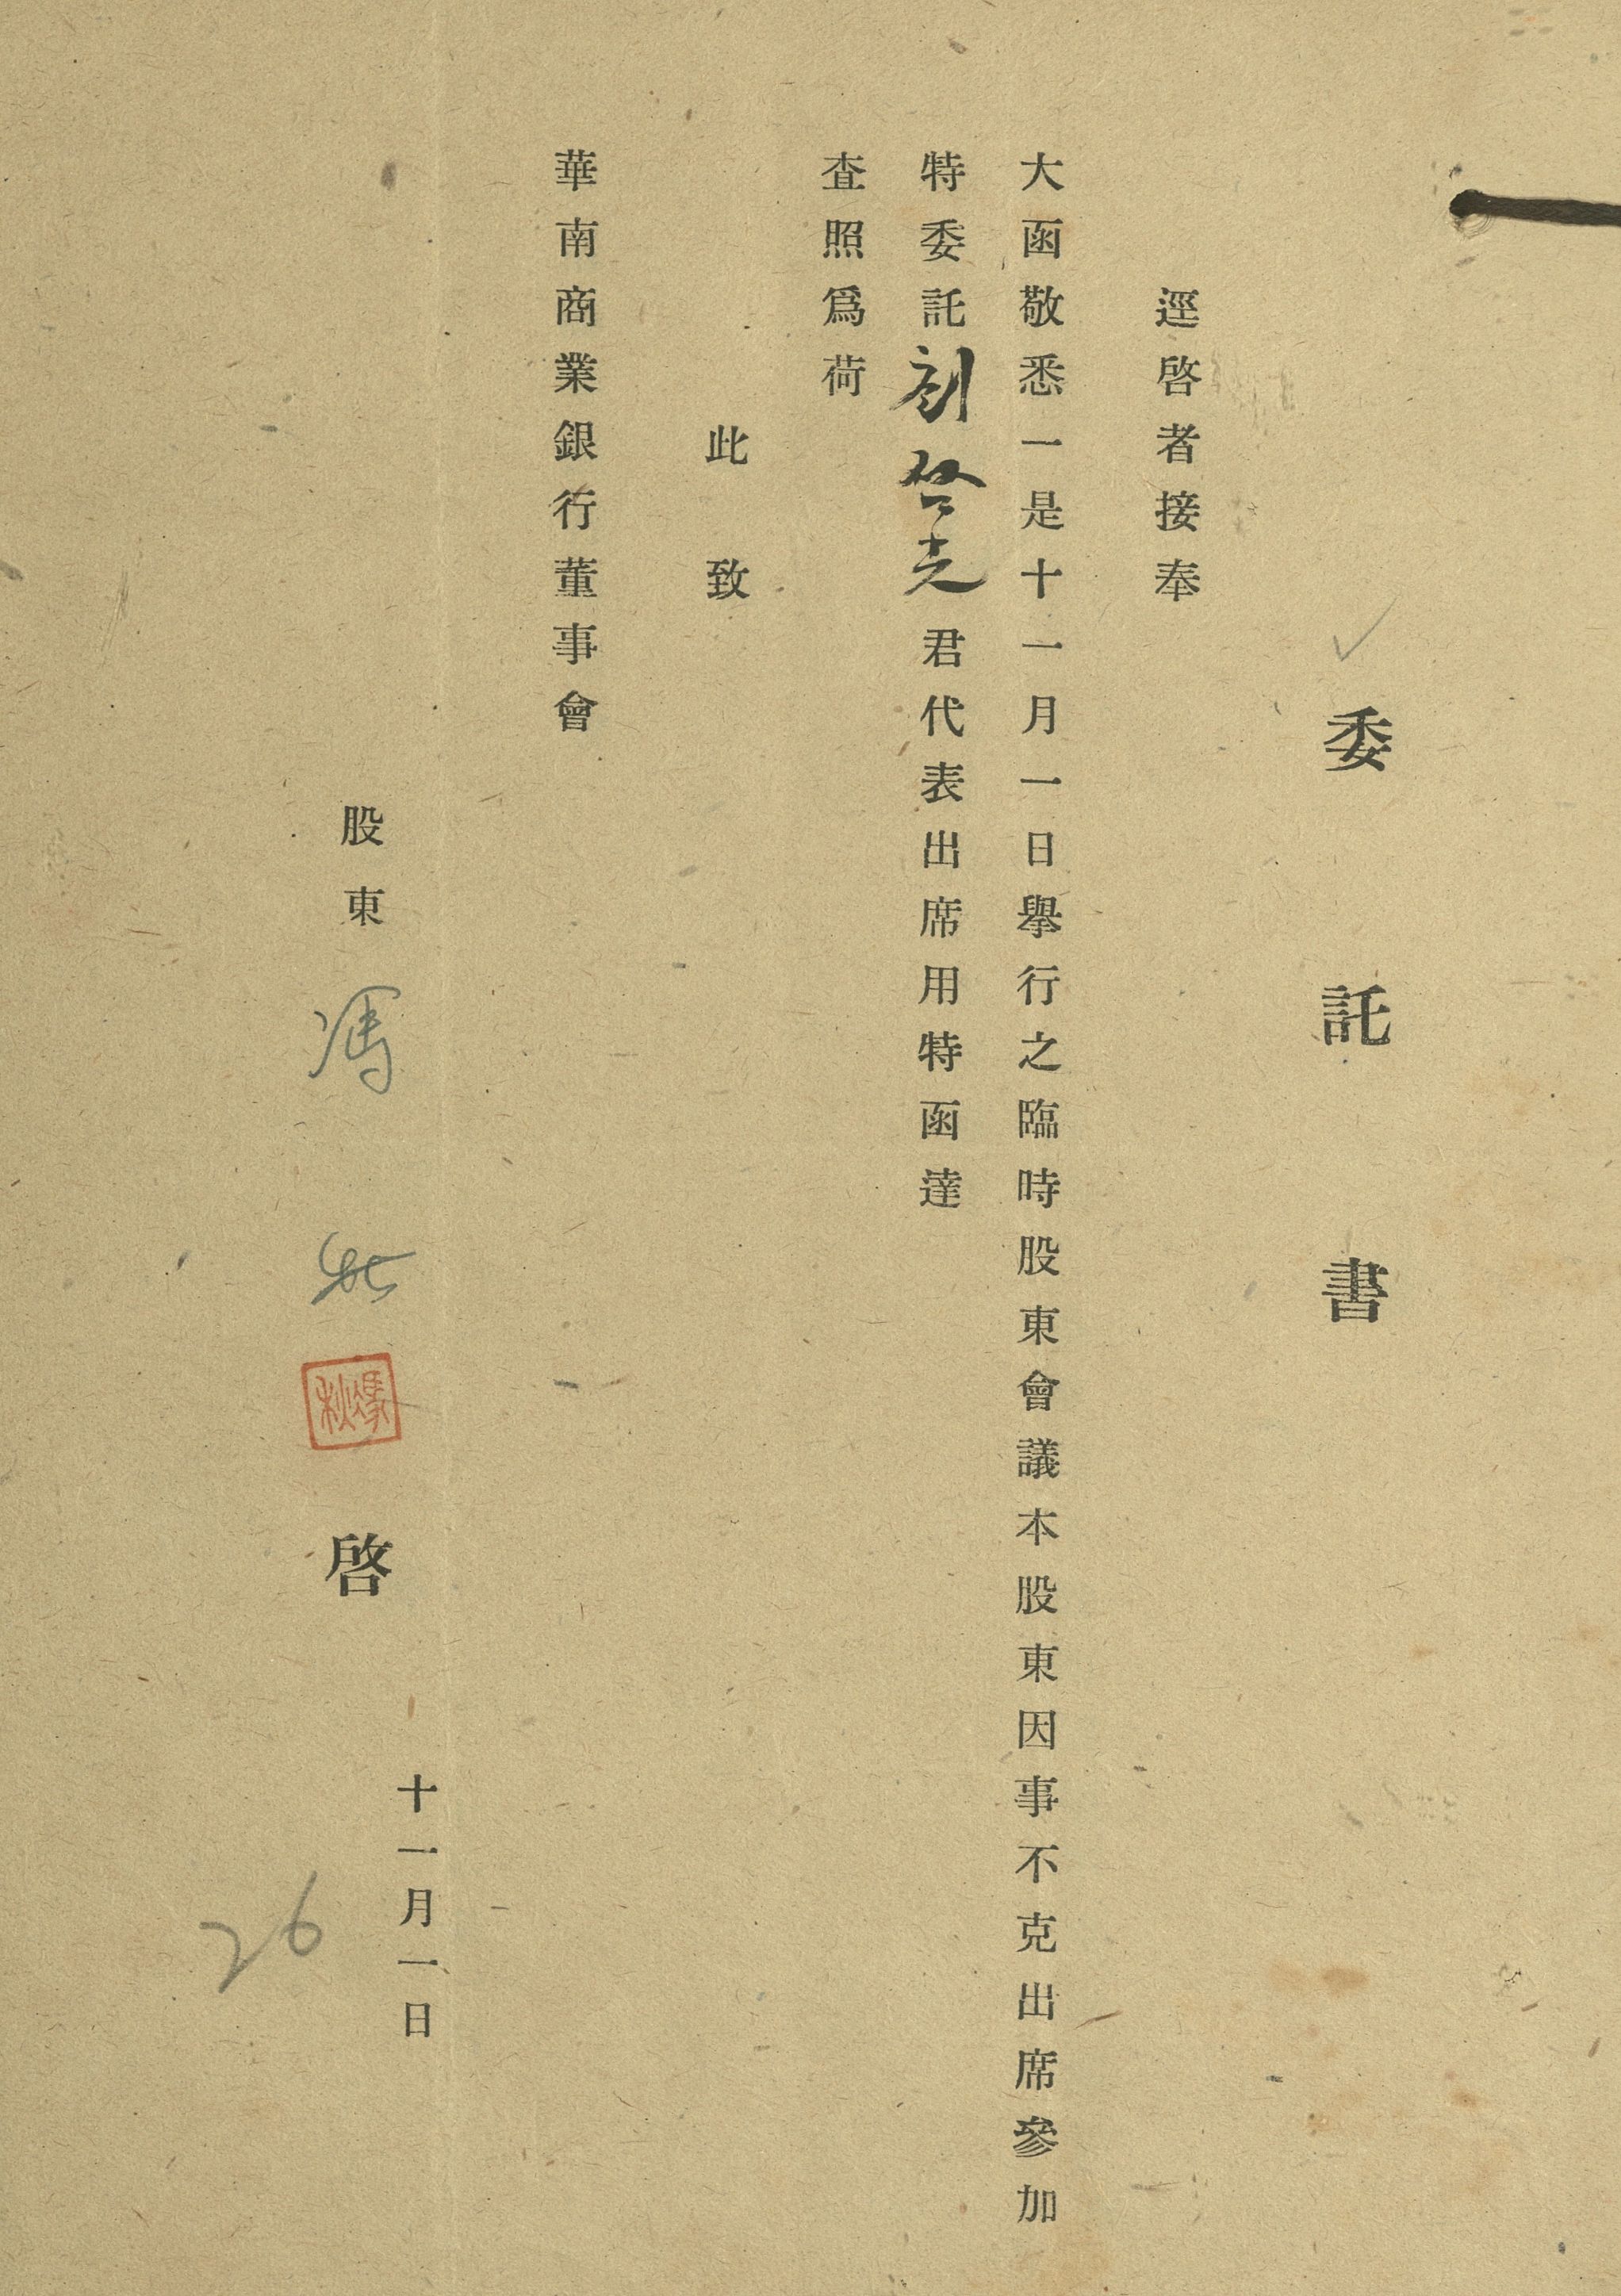 委託書
逕啓者接奉
大函敬悉一是十一月一日舉行之臨時股東會議本股東因事不克出席參加
特委託劉啓光君代表出席用特函達
查照爲荷
此致
華南商業銀行董事會
股東馮秋
馮秋
啓
十一月一日
26